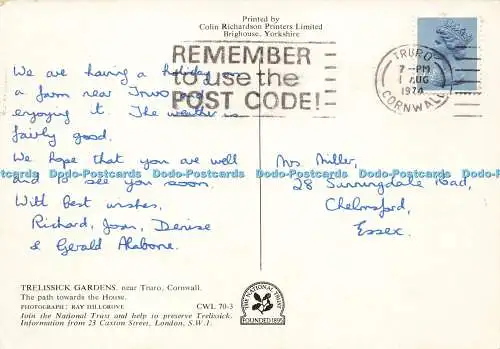 Printed by
Colin Richardson Printers Limited
Brighouse, Yorkshire
REMEMBER
to use the
POST CODE!
TRURO
7-PM
1 AUG
1974
CORNWALL
We are having a holiday on
a farm near Truro and
enjoying it. The weather is
fairly good.
We hope that you are well
and to see you soon.
With best wishes,
Richard, Joan, Denise
& Gerald
Mrs Miller,
28 Sunningdale Road,
Chelmsford,
Essex.
Dodo-Postcards Dodo-Postcards Dodo-Postcards Dodo-Postcards Dodo-Postcards Dodo-Postcards
TRELISSICK GARDENS, near Truro, Cornwall.
The path towards the House.
PHOTOGRAPH: RAY HILLGROVE
CWL 70-3
Join the National Trust and help to preserve Trelissick.
Information from 23 Caxton Street, London, S.W.1.
THE NATIONAL TRUST
FOUNDED 1895